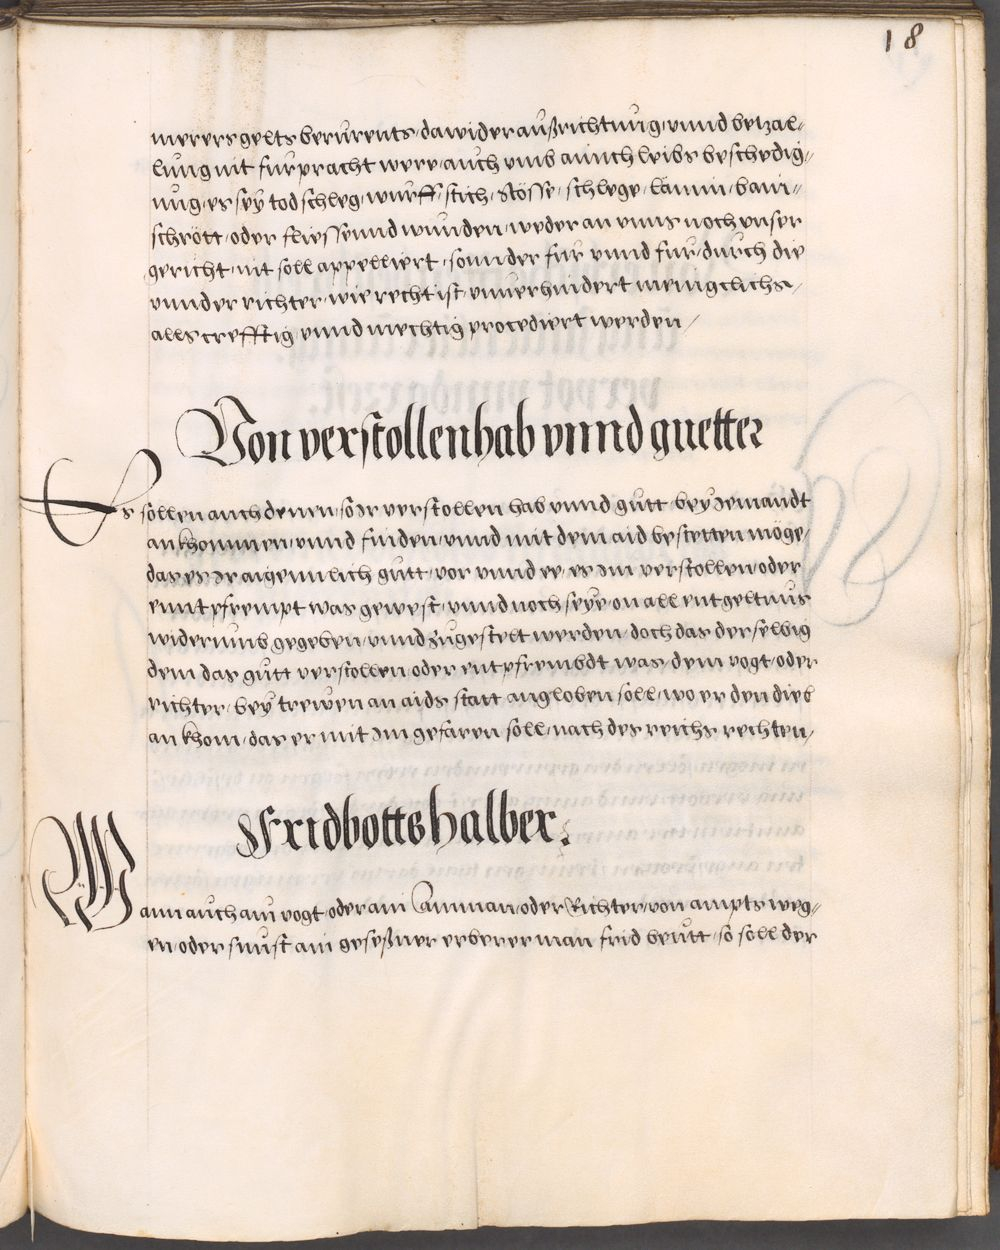 18
merers gelts berurents, dawider außrichtung, unnd betzal-
lung nit furpracht were, auch umb ainich leibs beschedig-
ung, es sey todschleg, wurff, stich, stösse, schlege, lämin, bain-
schrött, oder fliessennd wunden, weder an unns noch unser
gericht, nit soll appelliert, sonnder fur unnd fur, durch die
unnder richter, wie recht ist, unverhindert menigclichs,
alls crefftig, unnd mechtig procediert werden,
Von verstollen hab vnnd guetter
Es sollen auch denen, so Ir verstollen, hab unnd gutt, bey Jemandt
ankhommen, unnd finden, unnd mit dem aid bestetten möge,
das es Ir aigennlich gutt, vor unnd ee, es Im verstollen, oder
enntpfrempt was gewest, unnd noch seye, on all entgeltnus
widerumb gegeben, unnd zugestelt werden, doch das derselbig
dem das gutt verstollen oder entpfrembdt was, dem vogt, oder
richter, bey trewen an aids statt angloben soll, wo er den dieb
ankhom, das er mit Im gefaren soll, nach des reichs rechten,
Fridbotts halber.
Wann auch ain vogt, oder ain Amman, oder Richter, von ampts weg-
en, oder sunst ain geseßner erberer man frid beutt, so soll der